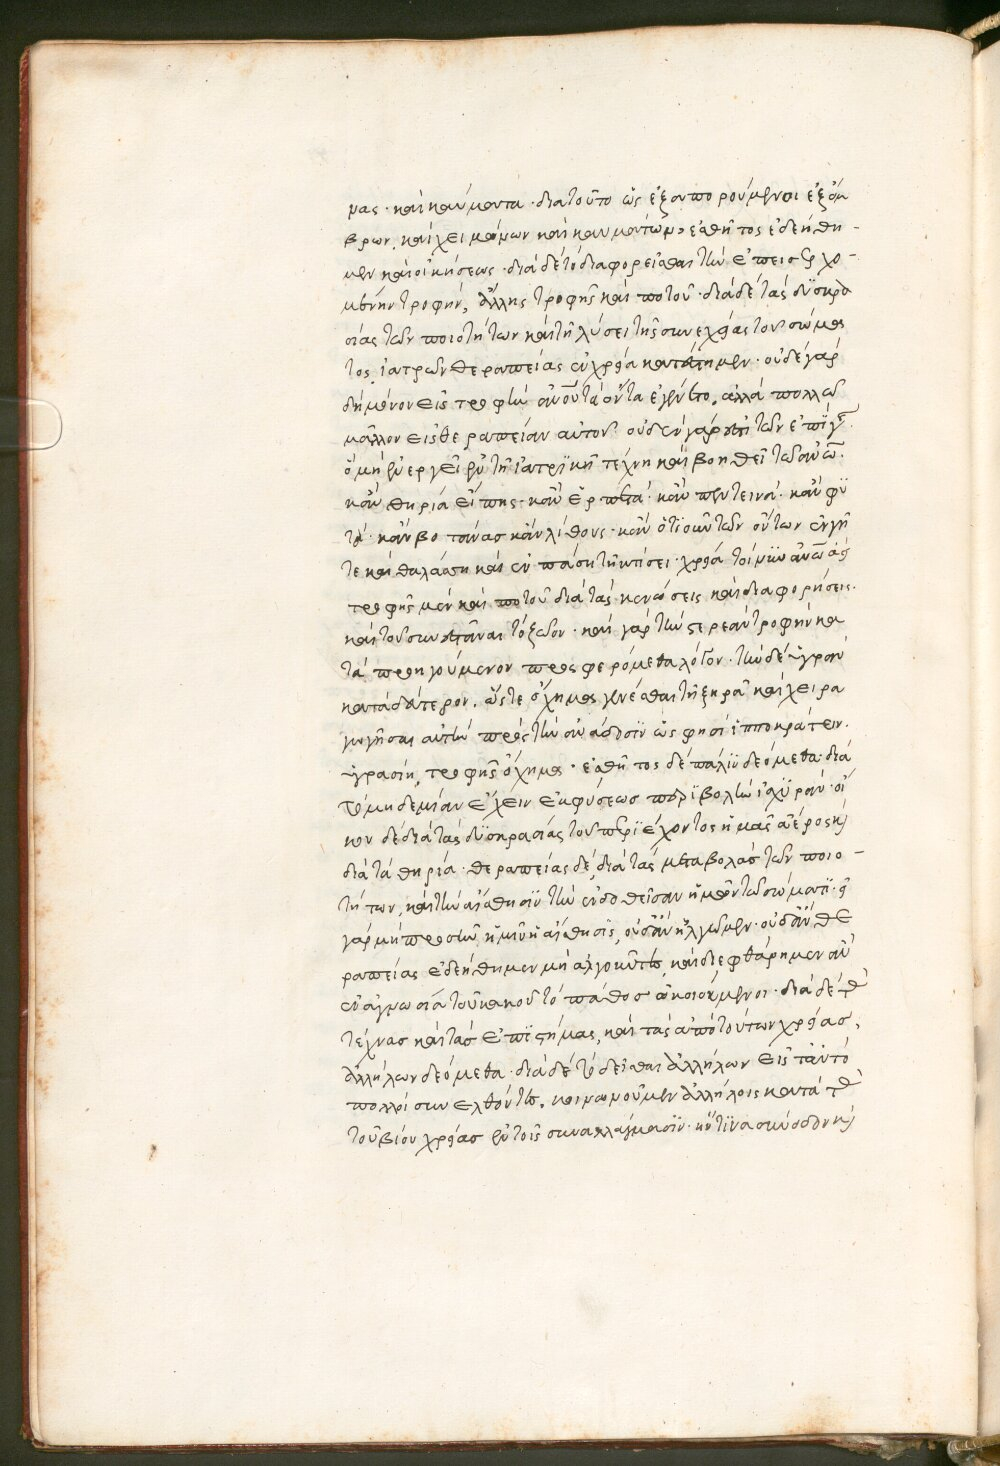 μας · καὶ καύματα · διὰ τοῦτο ὡς ἐξαπορούμενοι ἐξ ὄμ
βρων, καὶ χειμώνων καὶ καυμάτων, ἐσθῆτος ἐδεήθη-
μεν καὶ οἰκήσεως · διὰ δὲ τὸ διαφορεῖσθαι τὴν ἐπεισερχο-
μένην τροφήν, ἄλλης τροφῆς καὶ ποτοῦ · διὰ δὲ τὰς δϋσκρα
σίας τῶν ποιοτήτων καὶ τῇ λύσει τῆς συνεχείας τοῦ σώμα
τος, ἰατρῶν θεραπείας ἐν χρεία κατέστημεν · οὐδὲ γὰρ
δὴ μόνον εἰς τροφὴν ταῦτα ἐγένετο, ἀλλὰ πολλῶ
μᾶλλον εἰς θεραπείαν αὐτοῦ · οὐδὲν γάρ τῶν ἐπὶ γῆς
ὃ μὴ ἐνεργεῖ ἐν τῇ ἰατρϊκῇ τέχνη καὶ βοηθεῖ τῶ ἀνω ·
κἂν θηρία εἴπης · κἂν ἑρπετά · κἂν πετεινά · κἂν φϋ
τὰ · κἂν βοτάνας κἂν λίθους · κἂν ὁτϊοῦν τῶν ὄντων ἐν γῆ
τε καὶ θαλάσση καὶ ἐν πάση τῇ κτίσει · χρεία τοίνϋν
τροφῆς μὲν καὶ ποτοῦ διὰ τὰς κενώσεις καὶ διαφορήσεις ·
καὶ τοῦ συνιστᾶναι τὸ ζῶον · καὶ γὰρ τὴν στερεὰν τροφὴν κα
τὰ προηγούμενον προσφερόμεθα λόγον · τὴν δὲ ὑγρὰν
κατὰ δεύτερον, ὥστε ὄχημα γενέσθαι τῇ ξηρᾶ καὶ χειρα
γωγῆσαι αὐτὴν πρὸς τὴν ἀνάδοσϊν ὥς φησϊ ἱπποκράτην ·
ὑγρασίη, τροφῆς ὄχημα · ἐσθῆτος δὲ πάλϊν δεόμεθα διὰ
τὸ μηδεμίαν ἔχειν ἐκφύσεως περϊβολὴν ἰσχϋράν · οἴ
κου δὲ διὰ τὰς δϋσκρασίας τοῦ περϊέχοντος ἡμᾶς ἀέρος καὶ
διὰ τὰ θηρία · θεραπείας δὲ, διὰ τὰς μεταβολὰς τῶν ποιο-
τήτων, καὶ τὴν αἴσθησϊν τὴν ἐνδοθεῖσαν ἡμῶν τῶ σώματϊ · εἰ
γὰρ μὴ προσῆν ἡμῖν ἡ αἴσθησϊς, οὐδ' ἂν ἠλγοῦμεν · οὐδ' ἂν θε
ραπείας ἐδεήθημεν μὴ ἀλγοῦντες, καὶ διεφθάρημεν ἂν
ἐν ἀγνωσία τοῦ κακοῦ τὸ πάθος οὐκ ἰώμενοι · διὰ δὲ τὰς
τέχνας καὶ τὰς ἐπϊστήμας, καὶ τὰς ἀπὸ τούτων χρείας,
ἀλλήλων δεόμεθα · διὰ δὲ τὸ δεῖσθαι ἀλλήλων εἰς ταὐτὸ
πολλοὶ συνελθόντες, κοινωνοῦμεν ἀλλήλοις κατὰ τὰς
τοῦ βίου χρείας ἐν τοῖς συναλλάγμασϊν · ἥντϊνα σύνοδον καὶ